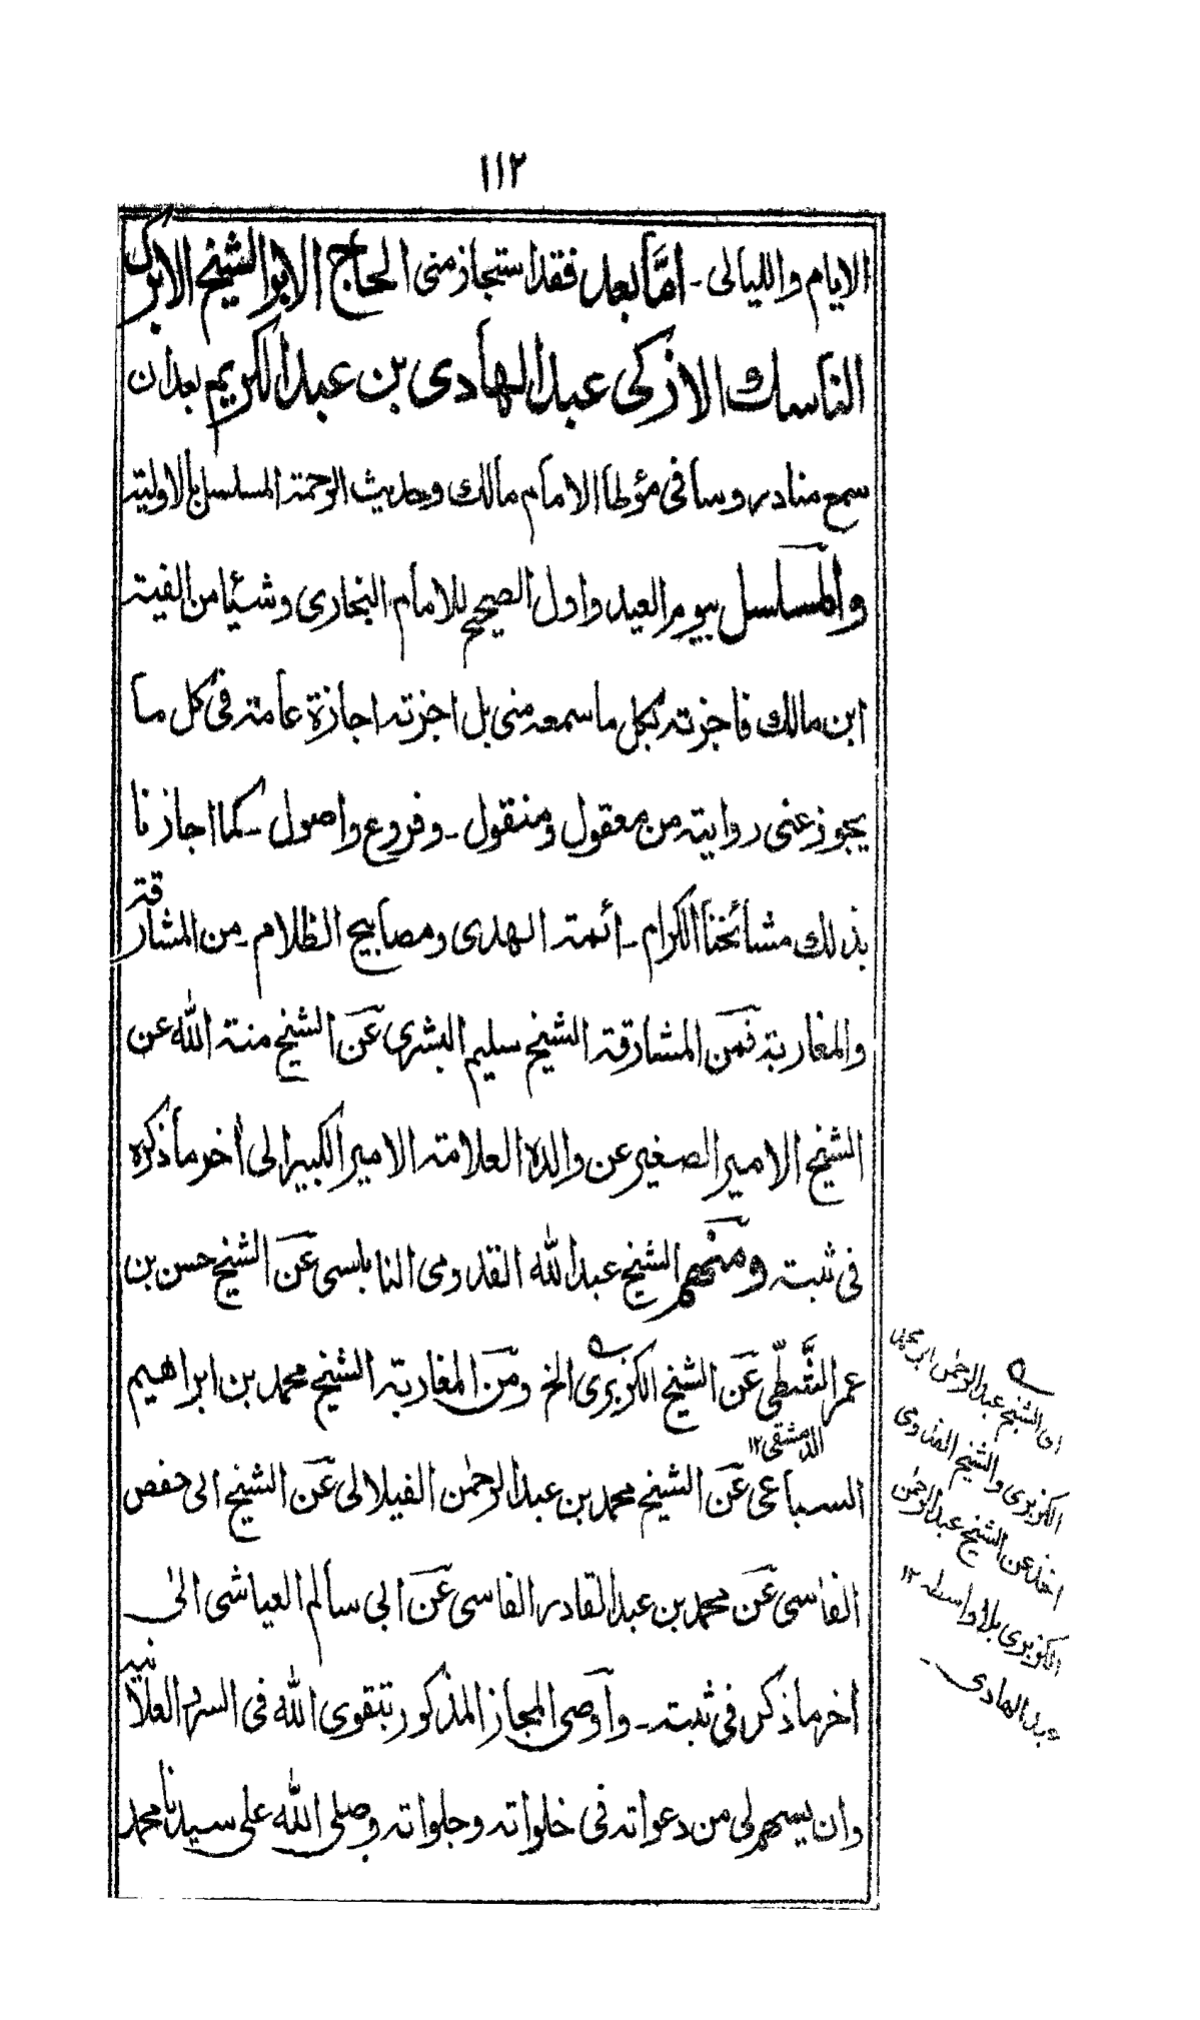 ١١٢
الايام والليالى ـ امَّا بعد فقد استجاز منى الحاج الابوا الشيخ الابرك
الناسك الازكى عبد الهادى بن عبد الكريم بعد ان
سمع منا دروسا فى مؤطا الامام مالك وحديث الرحمة المسلسل بالاولية
والمسلسل بيوم العيد واول الصحيح للامام البخارى وشيئا من الفية
ابن مالك فاجزته بكل ما سمعه منى بل اجزته اجازة عامة فى كل ما
يجوز عنى روايته من معقول ومنقول ـ وفروع واصول ـ كما اجازنا
بذلك مشائخنا الكرام ـ ائمة الهدى ومصابيح الظلام ـ من المشارقة
والمغاربة فمن المشارقة الشيخ سليم البشرى عن الشيخ منة الله عن
الشيخ الامير الصغير عن والده العلامة الامير الكبير الى اخر ما ذكره
فى ثبته ومنهم الشيخ عبد الله القدومى النابلسى عن الشيخ حسن بن
عمر الشَّطِّى عن الشيخ الكزبرى الخ ومن المغاربة الشيخ محمد بن ابراهيم
الدمشقى ١٢
السباعى عن الشيخ محمد بن عبد الرحمٰن الفيلالى عن الشيخ ابى حفص
الفاسى عن محمد بن عبد القادر الفاسى عن ابى سالم العياشى الىٰ
اخر ما ذكر فى ثبته ـ واوصى المجاز المذكور بتقوى الله فى السر والعلانية
وان يسهم لى من دعواته فى خلواته وجلواته وصلى الله على سيدنا محمد
اى الشيخ عبد الرحمٰن ابن محمد
الكزبرى والشيخ القدومى
اخذ عن الشيخ عبد الرحمٰن
الكزبرى بلا واسطه ١٢
عبد الهادى ـ